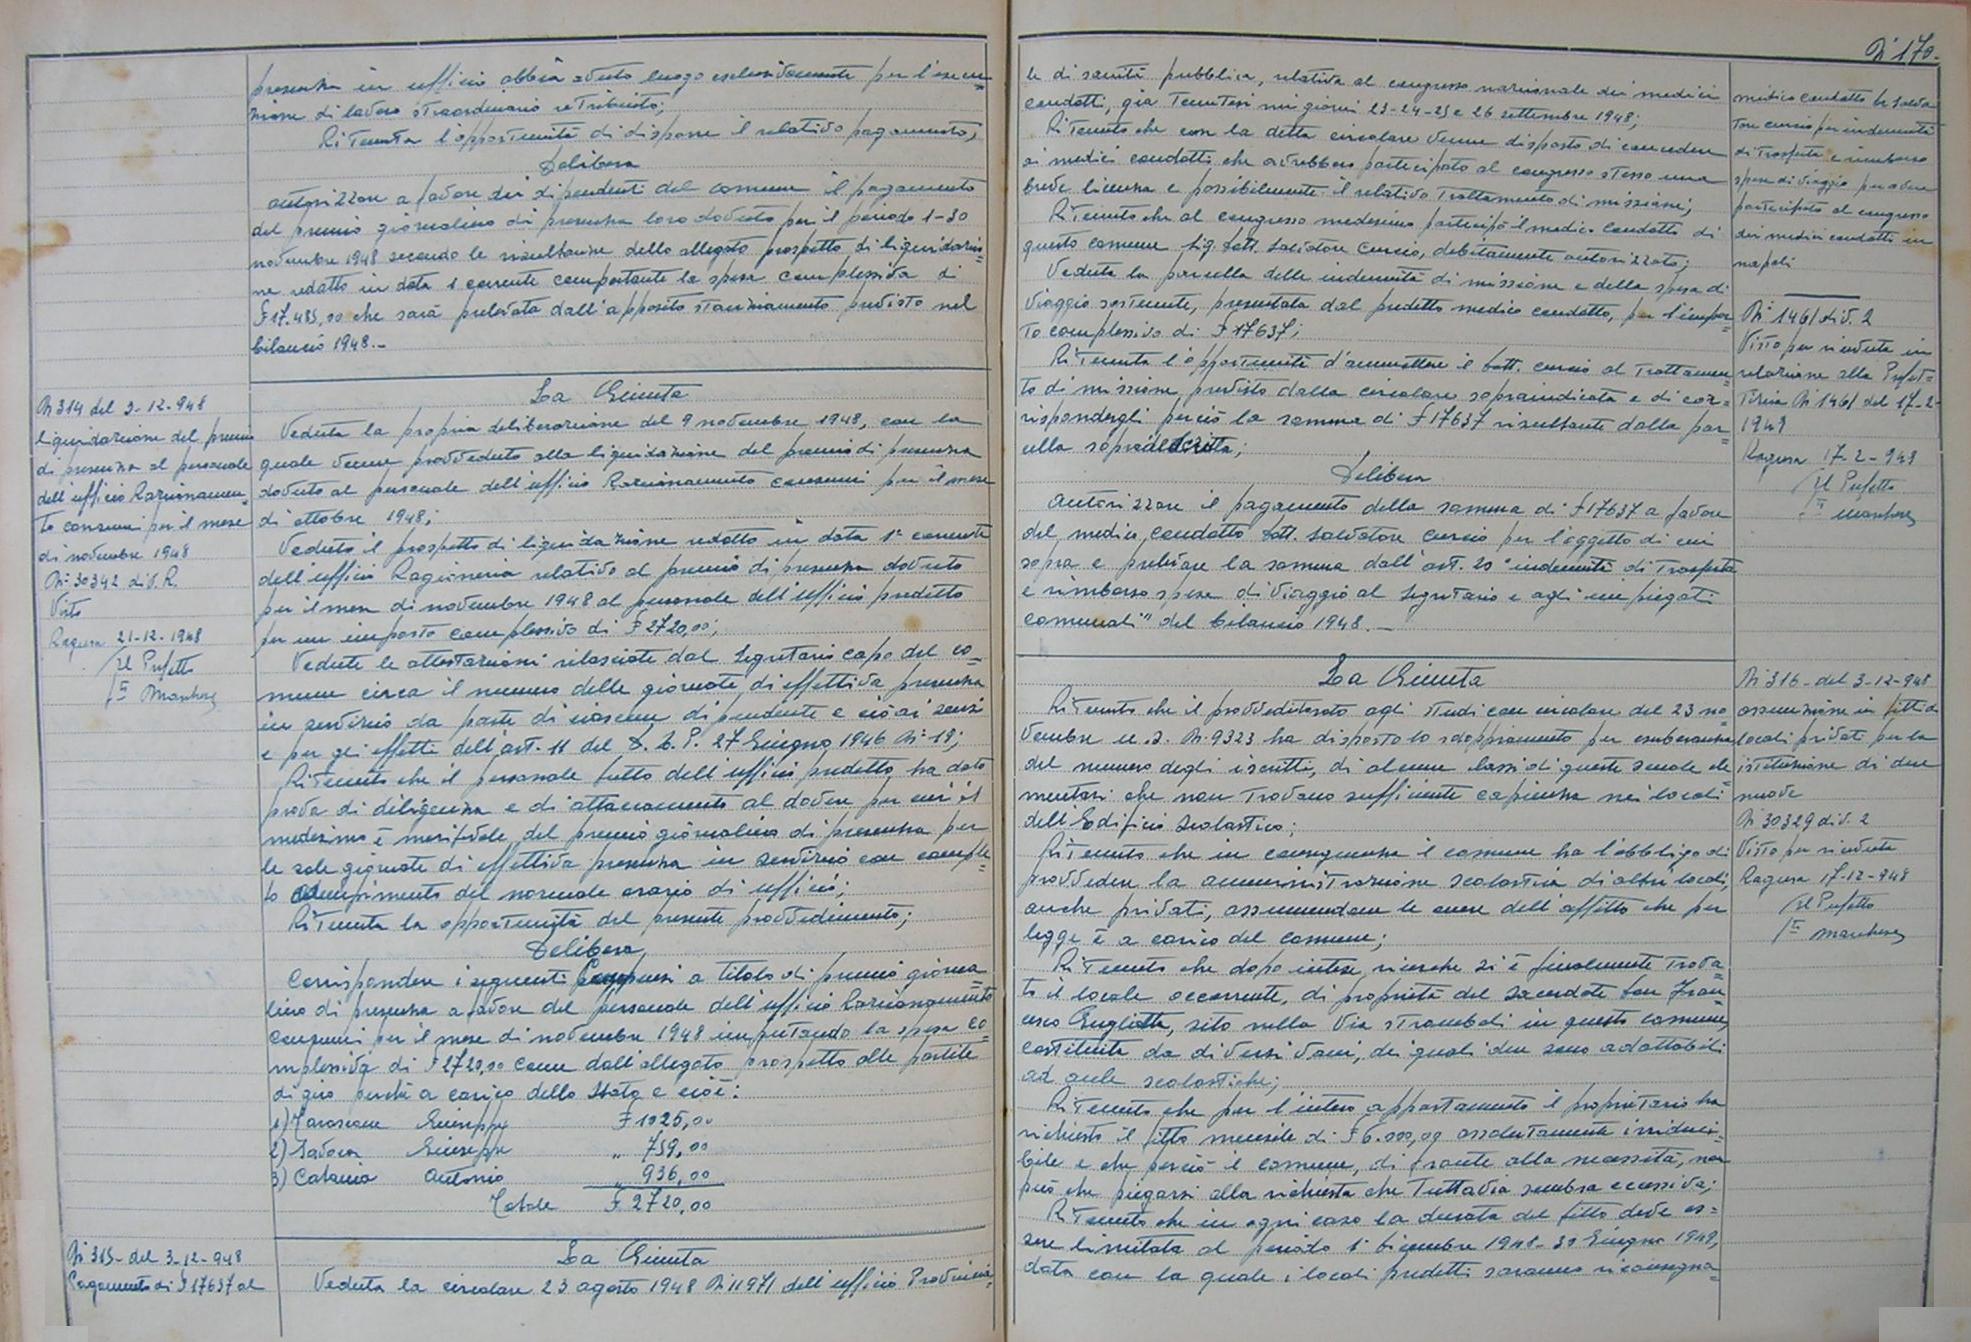 presenza in ufficio abbia avuto luogo esclusivamente per l'esecu=
zione di lavoro straordinario retribuito;
Ritenuta l'opportunità di disporre il relativo pagamento,
Delibera
autorizzare a favore dei dipendenti del comune il pagamento
del premio giornaliero di presenza loro dovuto per il periodo 1-30
novembre 1948 secondo le risultanze dello allegato prospetto di liquidazio=
ne redatto in data 1 corrente comportante la spesa complessiva di
£ 17.485,00 che sarà prelevata dall'apposito stanziamento previsto nel
bilancio 1948.-
N 314 del 3-12-948
liquidazione del premio
di presenza al personale
dell'ufficio Razionamen=
to consumi per il mese
di novembre 1948
N° 30342 div. R.
Visto
Ragusa 21-12-1948
Il Prefetto
La Giunta
Veduta la propria deliberazione del 9 novembre 1948, con la
quale venne provveduto alla liquidazione del premio di presenza
dovuto al personale dell'ufficio Razionamento consumi per il mese
di ottobre 1948;
Veduto il prospetto di liquidazione redatto in data 1° corrente
dell'ufficio Ragioneria relativo al premio di presenza dovuto
per il mese di novembre 1948 al personale dell'ufficio predetto
per un importo complessivo di £ 2720,00;
Vedute le attestazioni rilasciate dal Segretario capo del co=
mune circa il numero delle giornate di effettiva presenza
in servizio da parte di ciascun dipendente e ciò ai sensi
e per gli effetti dell'art. 11 del D. L. P. 27 Giugno 1946 N° 19;
Ritenuto che il personale tutto dell'ufficio predetto ha dato
prova di diligenza e di attaccamento al dovere per cui il
medesimo è meritevole del premio giornaliero di presenza per
le sole giornate di effettiva presenza in servizio con comple=
to adempimento del normale orario di ufficio;
Ritenuta la opportunità del presente provvedimento;
Delibera
Corrispondere i seguenti compensi a titolo di premio giorna=
liero di presenza a favore del personale dell'ufficio Razionamento
Consumi per il mese di novembre 1948 imputando la spesa co=
mplessiva di £ 2720,00 come dall'allegato prospetto alle partite
di giro perché a carico dello Stato e cioè:
1) Tarascone Giuseppe £ 1025,00
2) Giuseppe " 759,00
3) Catania Antonio " 936,00
Totale £ 2720,00
N 315- del 3-12-948
Pagamento di £ 17637 al
La Giunta
Veduta la circolare 23 agosto 1948 N 11971 dell'ufficio Provincia=
N° 170.
le di sanità pubblica, relativa al congresso nazionale dei medici
condotti, già tenutosi nei giorni 23-24-25 e 26 settembre 1948;
Ritenuto che con la detta circolare venne disposto di concedere
ai medici condotti che avrebbero partecipato al congresso stesso una
breve licenza e possibilmente il relativo trattamento di missione;
Ritenuto che al congresso medesimo partecipò il medico condotto di
questo comune Sig. Dott. Salvatore Curcio, debitamente autorizzato;
Veduta la parcella delle indennità di missione e della spesa di
viaggio sostenute, presentata dal predetto medico condotto, per l'impor=
to complessivo di £ 17637;
Ritenuta l'opportunità d'ammettere il Dott. Curcio al trattamen=
to di missione previsto dalla circolare sopraindicata e di cor=
rispondergli perciò la somma di £ 17637 risultante dalla par=
cella sopradescritta;
Delibera
autorizzare il pagamento della somma di £ 17637 a favore
del medico condotto Dott. Salvatore Curcio per l'oggetto di cui
sopra e prelevare la somma dall'art. 20 "indennità di trasferta
e rimborso spese di viaggio al Segretario e agli impiegati
comunali" del bilancio 1948. -
medico condotto Dr Salva
tore Curcio per indennità
di trasferta e rimborso
spese di viaggio per avere
partecipato al congresso
dei medici condotti in
napoli
N° 1461 div. 2
Visto per ricevuta in
relazione alla Prefet=
tizia N 1461 del 17-2-
1949
Ragusa 17-2-949
Il Prefetto
La Giunta
Ritenuto che il provveditorato agli studi con circolare del 23 no=
vembre u.s. N. 9323 ha disposto lo sdoppiamento per esuberanza
del numero degli iscritti, di alcune classi di queste scuole ele
mentari che non trovano sufficiente capienza nei locali
dell'Edificio Scolastico;
Ritenuto che in conseguenza il comune ha l'obbligo di
provvedere la amministrazione scolastica di altri locali,
anche privati, assumendone le onere dell'affitto che per
legge è a carico del comune;
Ritenuto che dopo intese ricerche si è finalmente trova=
to il locale occorrente, di proprietà del Sacerdote Don Fran=
cesco Gugliotta, sito nella Via Stromboli in questo comune,
costituita da diversi vani, dei quali due sono adattabili
ad aule scolastiche;
Ritenuto che per l'intero appartamento il proprietario ha
richiesto il fitto mensile di £ 6.000,00 assolutamente irriduci=
bile e che perciò il comune, di fronte alla necessità, non
può che piegarsi alla richiesta che tuttavia sembra eccessiva;
Ritenuto che in ogni caso la durata del fitto deve es=
sere limitata al periodo 1° dicembre 1948 - 30 Giugno 1949,
data con la quale i locali predetti saranno riconsegna=
N° 316 - del 3-12-948
assunzione in fitto di
locali privati per la
istituzione di due
nuove
N 30329 div. 2
Visto per ricevuta
Ragusa 17-12-948
Il Prefetto